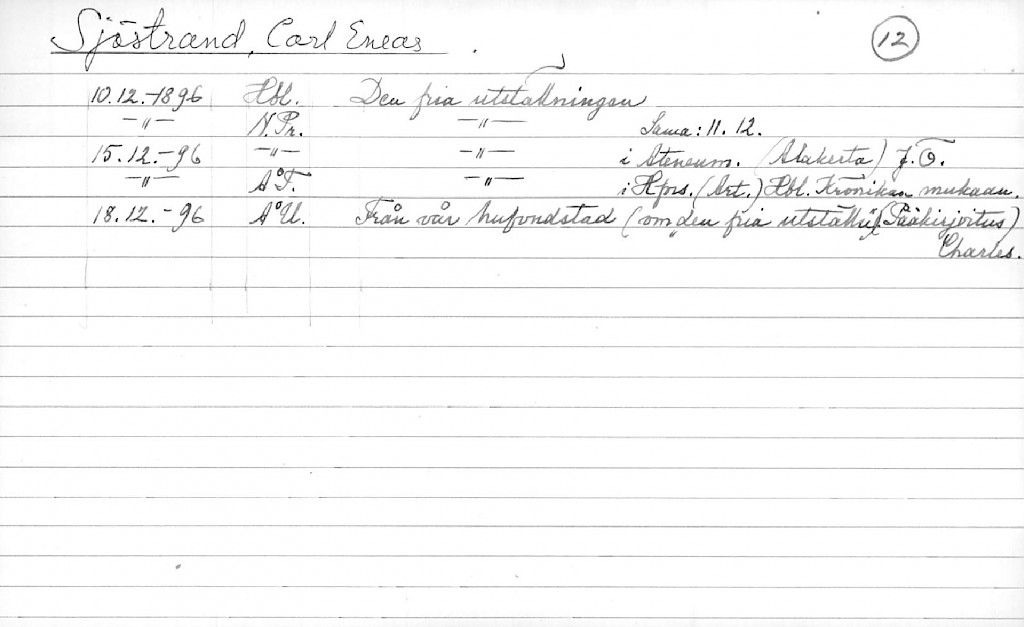 Sjöstrand, Carl Eneas 12
10.12.-1896 Hbl. Den fria utställningen
-"- N.Pr. -"- Sama: 11.12.
15.12.-96 -"- -"- i Ateneum. (Alakerta) J.O.
-"- ÅT. -"- i Hfors. (Art.) Hbl. Kronikan mukaan.
18.12.-96 ÅU. Från vår hufvudstad (om den fria (Pääkirjoitus)
Charles.